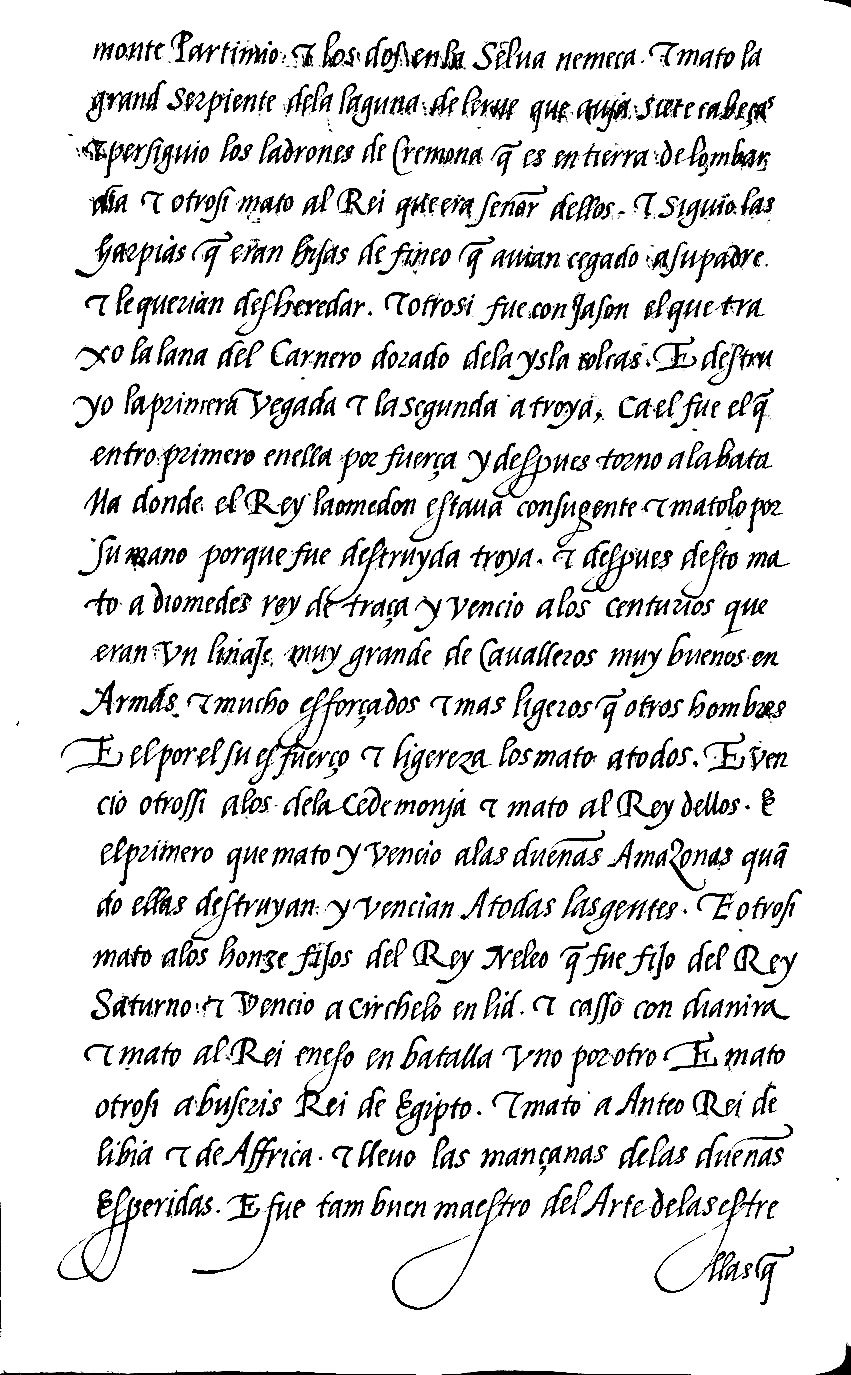 monte Partimio. τ los dos en la Selua nemeca. τ mato la
grand serpiente dela laguna de lerne que auja siete cabeças
τ persiguio los ladrones de Cremona q̃ es en tierra de lombar
dia τ otrosi mato al Rei que era señor dellos. τ siguio las
harpias q̃ eran hijas de fineo q̃ auian cegado asu padre.
τ le querian desheredar. τ otrosi fue con Jason el que tra
xo la lana del Carnero dorado dela ysla colcas. E destru
yo la primera vegada τ la segunda a troya, ca el fue el q̃
entro primero enella por fuerça y despues torno ala bata
lla donde el Rey laomedon estaua con su gente τ matolo por
su mano porque fue destruyda troya. τ despues desto ma
to a diomedes rey de traça y vencio alos centurios que
eran vn linaje muy grande de Caualleros muy buenos en
Armas. τ mucho esforçados τ mas ligeros q̃ otros hombres
E el por el su esfuerço τ ligereza los mato atodos. E ven
cio otrossi alos dela cedemonja τ mato al Rey dellos. E
el primero que mato y vencio alas dueñas Amazonas quã
do ellas destruyan y vencian Atodas las gentes. E otrosi
mato alos honze fijos del Rey Neleo q̃ fue fijo del Rey
Saturno τ vencio a circhelo en lid. τ casso con dianira
τ mato al Rei eneso en batalla vno por otro E mato
otrosi a buseris Rei de Egipto. τ mato a Anteo Rei de
libia τ de Affrica. τ lleuo las mançanas delas dueñas
Esperidas. E fue tam buen maestro del Arte delas estre
llas q̃